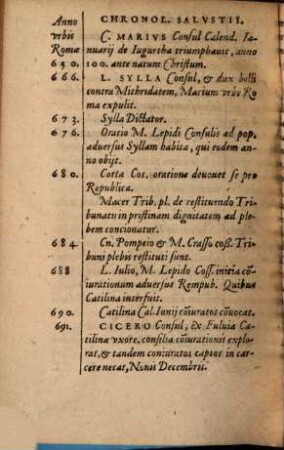 Anno CHRONOL. SALVSTII.
vrbis C. MARIVS Consul Calend. Ia-
Romæ nuarij de Iugurtha triumphauit, anno
650. 100. ante natum Christum.
666. L. SYLLA Consul, & dux belli
contra Mithredatem, Marium vrbe Ro
ma expulit.
673. Sylla Dictator.
676. Oratio M. Lepidi Consulis ad pop.
aduersus Syllam habita, qui eodem an-
no obijt.
680. Cotta Cos. oratione deouet se pro
Republica.
Macer Trib. pl. de restituendo Tri-
bunatu in pristinam dignitatem ad ple-
bem concionatur.
684 Cn. Pompeio & M. Crasso coß. Tri-
buni plebis restituti sunt.
688 L. Iulio, M. Lepido Coß. initia cō-
iurationum aduersus Rempub. Quibus
Catilina interfuit.
690. Catilina Cal. Iunij cōiuratos cōuocat.
691. CICERO Consul, ex Fuluia Ca-
tilinæ vxore, consilia cōiurationis explo-
rat, & tandem coniuratos captos in car-
cere necat, Nonis Decembris.